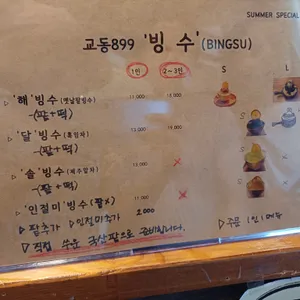 SUMMER SPECIAL
교동899 '빙수' (BINGSU)
1인 2~3인 S L
▷ '해'빙수 (옛날팥빙수) 11,000
-(팥+떡)
▷ '달'빙수 (흑임자)
-(팥+떡)
▷ '솔'빙수 (제주말차) ×
-(팥+떡)
▷ '인절미'빙수 (팥×) ×
▷ 팥추가 ▷ 인절미추가 2,000
▷ 직접 쑤운 국산팥으로 준비합니다.
S
S
S